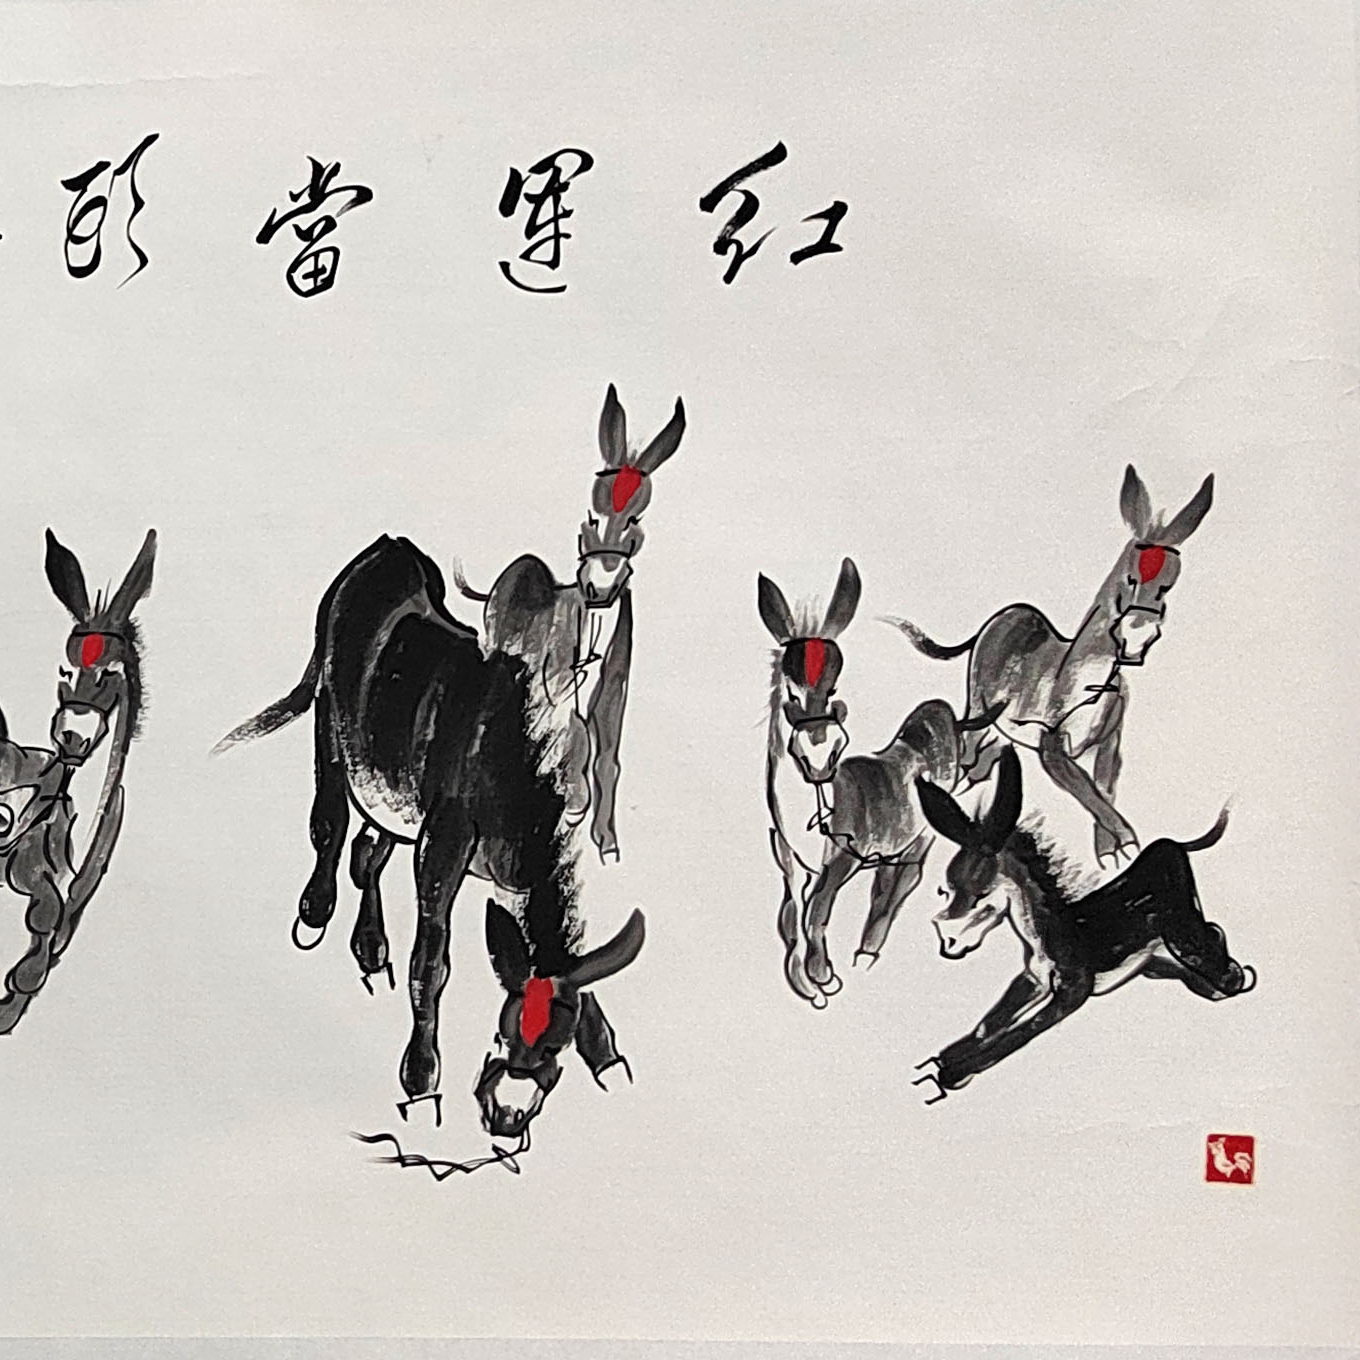 红運當頭